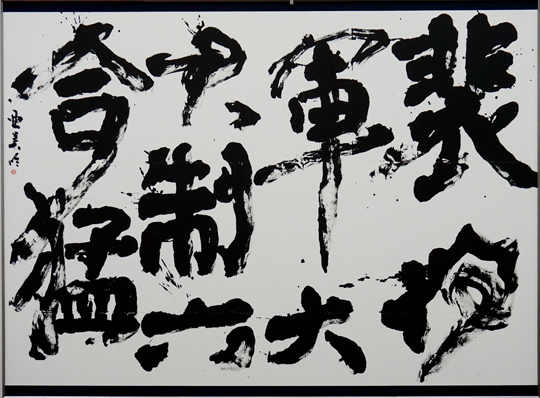 裴将
軍大
君制六
合猛